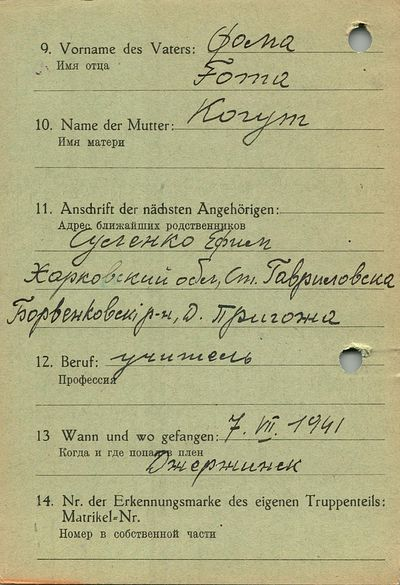 9. Vorname des Vaters: Фома
Имя отца
Foma
10. Name der Mutter: Когут
Имя матери
11. Anschrift der nächsten Angehörigen:
Адрес ближайших родственников
Сусленко Ефим
Харковский обл, Ст. Гавриловска
Борвенковскі р-н, д. Пригожа
12. Beruf: учитель
Профессия
13 Wann und wo gefangen: 7. VII. 1941
Когда и где попал в плен
Джержинск
14. Nr. der Erkennungsmarke des eigenen Truppenteils:
Matrikel-Nr.
Номер в собственной части